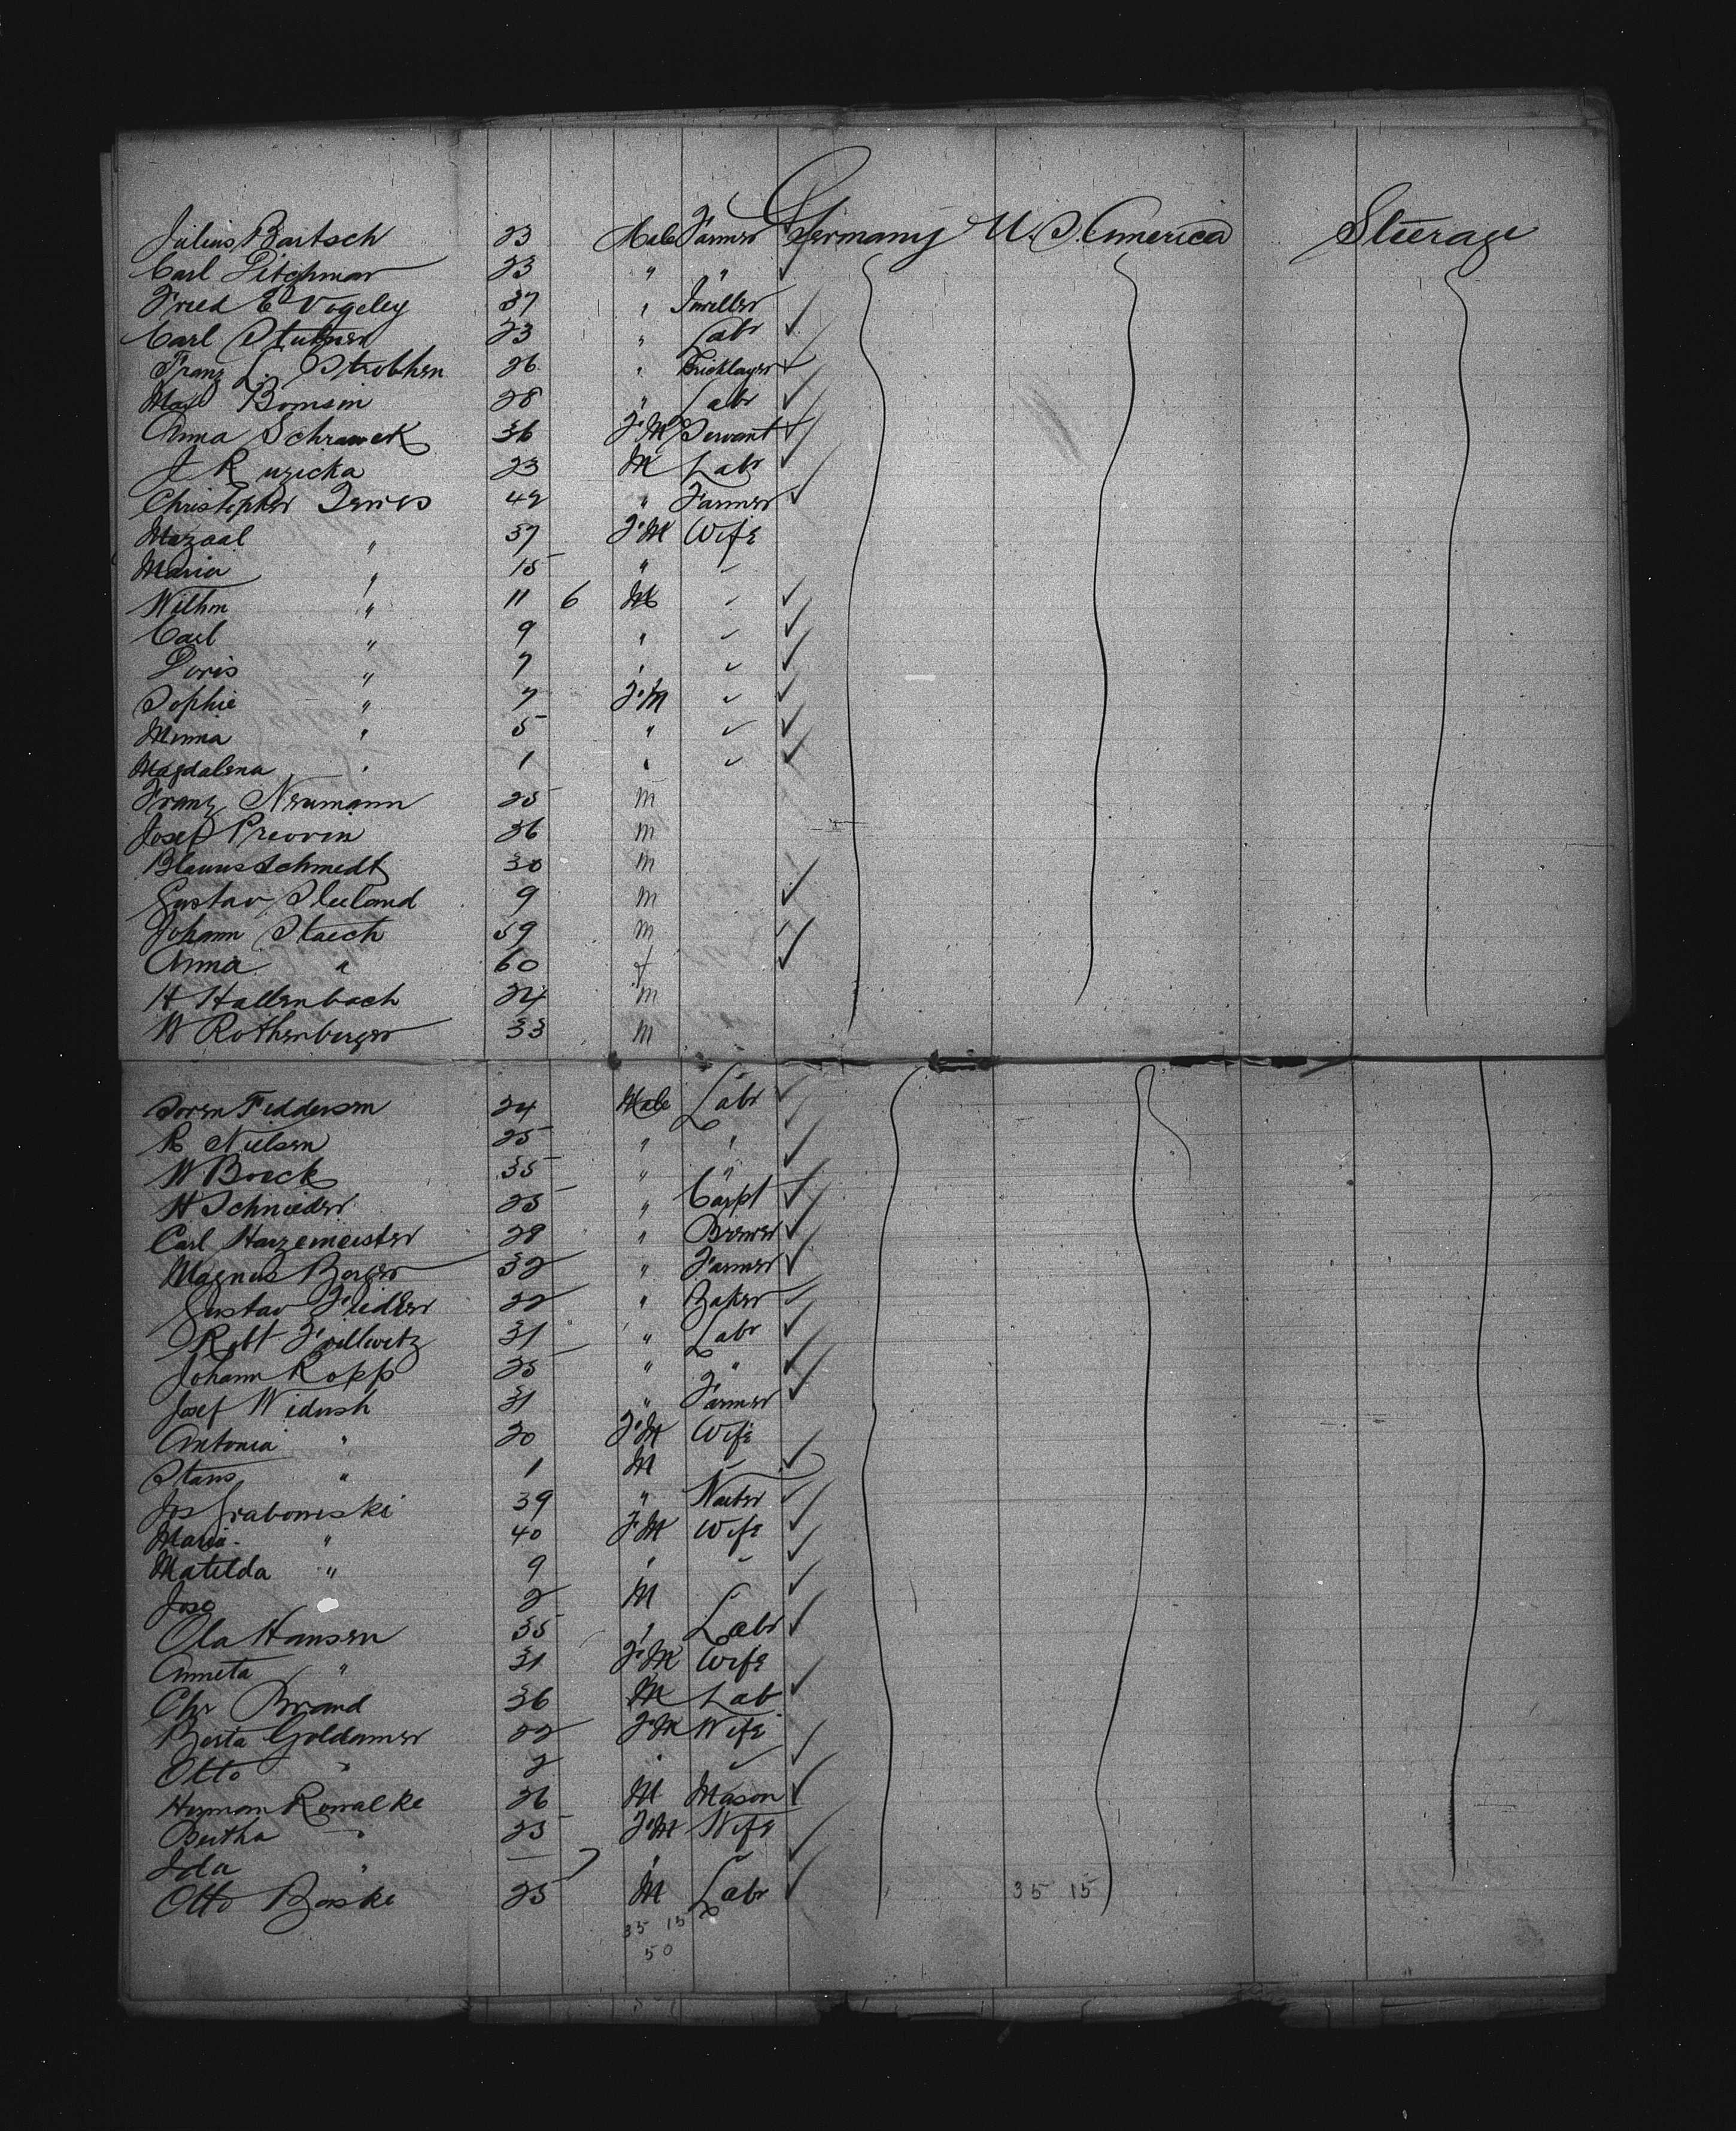 Julius Bartsch 23 Male Farmer Germany U. S. America Steerage
Carl Pitschman 23 " "
Fried Ed Vogeley 37 " Jweller
Carl Stutzner 23 " Labr
Franz L. Strobhen 26 " Bricklayer
Max Bomsin 28 " Labr
Anna Schramek 36 F.M Servant
J Ruzicka 23 M Labr
Christepher 42 " Farmer
37 F.M Wife
Maria " 15 "
Wilhm " 11 6 M
Carl " 9 "
Doris " 7 "
Sophie " 7 F.M
Minna " 5 "
Magdalena " 1 "
Franz Neumann 25 m
Josef 26 m
Schmedt 30 m
Gustav 9 m
Johann Staech 59 m
Anna " 60 f
H Hallenbach 24 m
W Rothenberger 33 m
Soren Feddersen 24 Male Labr
R Nielsen 25 " "
W Boeck 35 " "
H Schnieder 25 " Carpt
Carl Harzemeister 28 " Brewer
Magnus Berger 32 " Farmer
Gustav Fiedler 22 " Baker
Robt Frillwitz 31 " Labr
Johann Kopp 25 " "
Josef Widush 31 " Farmer
Antonia " 20 F.M Wife
Stans " 1 M
Jos Grabowski 39 "
Maria " 40 F.M Wife
Matilda " 9 "
Jose 2 M
Ola Hansen 35 " Labr
Anneta " 31 F.M Wife
Chr Brand 36 M Lab
Berta Goldamer 22 F.M Wife
Otto " 2 "
Herman Kowalke 26 M Mason
Bertha " 25 F.M Wife
Ida " — 7 "
Otto Baske 25 M Labr 35 15
35 15
50